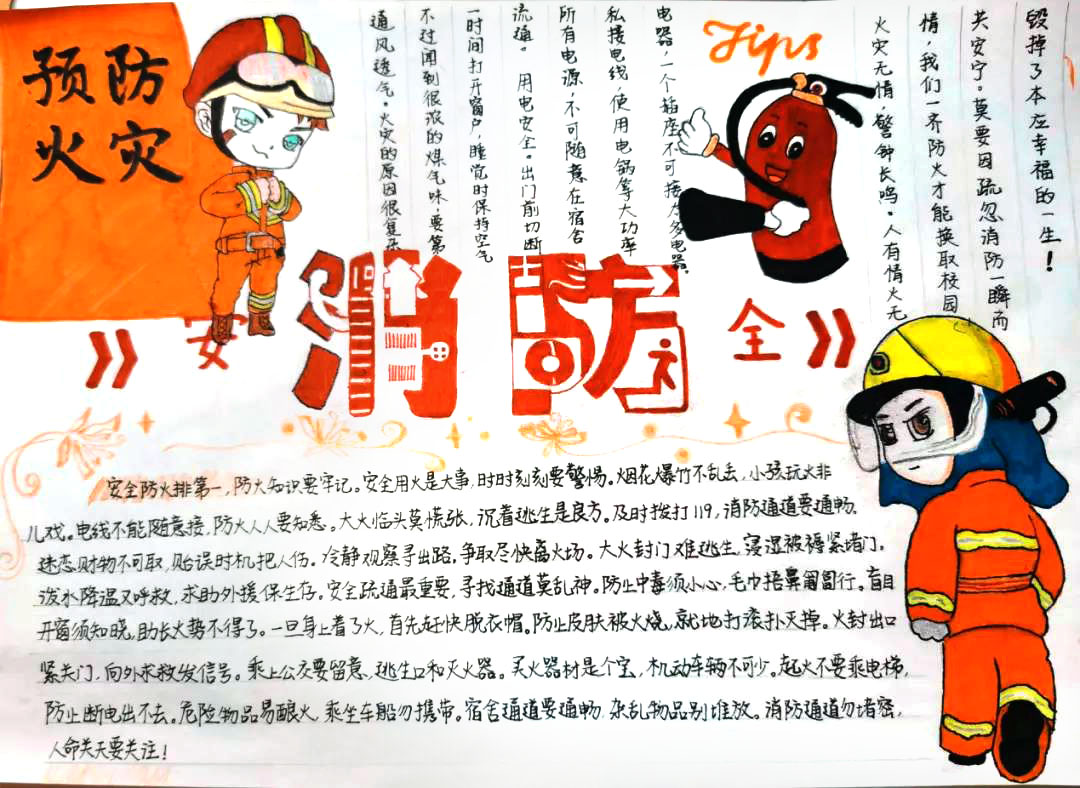 预防
火灾
Tips
通风透气。火灾的原因很复杂
不过闻到很浓的煤气味，要第
一时间打开窗户，睡觉时保持空气
流通。用电安全。出门前切断
所有电源，不可随意在宿舍
私接电线，使用电锅等大功率
电器，一个插座不可接太多电器。
火灾无情，警钟长鸣。人有情火无
情，我们一齐防火才能换取校园
共安宁。莫要因疏忽消防一瞬而
毁掉了本在幸福的一生！
安消防全
安全防火排第一，防火知识要牢记。安全用火是大事，时时刻刻要警惕。烟花爆竹不乱丢，小孩玩火非
儿戏。电线不能随意接，防火人人要知悉。大火临头莫慌张，沉着逃生是良方。及时拨打119，消防通道要通畅。
迷恋财物不可取，贻误时机把人伤。冷静观察寻出路，争取尽快离火场。大火封门难逃生，浸湿被褥紧堵门。
泼水降温又呼救，求助外援保生存。安全疏通最重要，寻找通道莫乱神。防止中毒须小心，毛巾捂鼻匍匐行。盲目
开窗须知晓，助长火势不得了。一旦身上着了火，首先赶快脱衣帽。防止皮肤被火烧，就地打滚扑灭掉。火封出口
紧关门，向外求救发信号。乘上公交要留意，逃生口和灭火器。灭火器材是个宝，机动车辆不可少。起火不要乘电梯，
防止断电出不去。危险物品易酿火，乘坐车船勿携带。宿舍通道要通畅，杂乱物品别堆放。消防通道勿堵塞，
人命关天要关注！